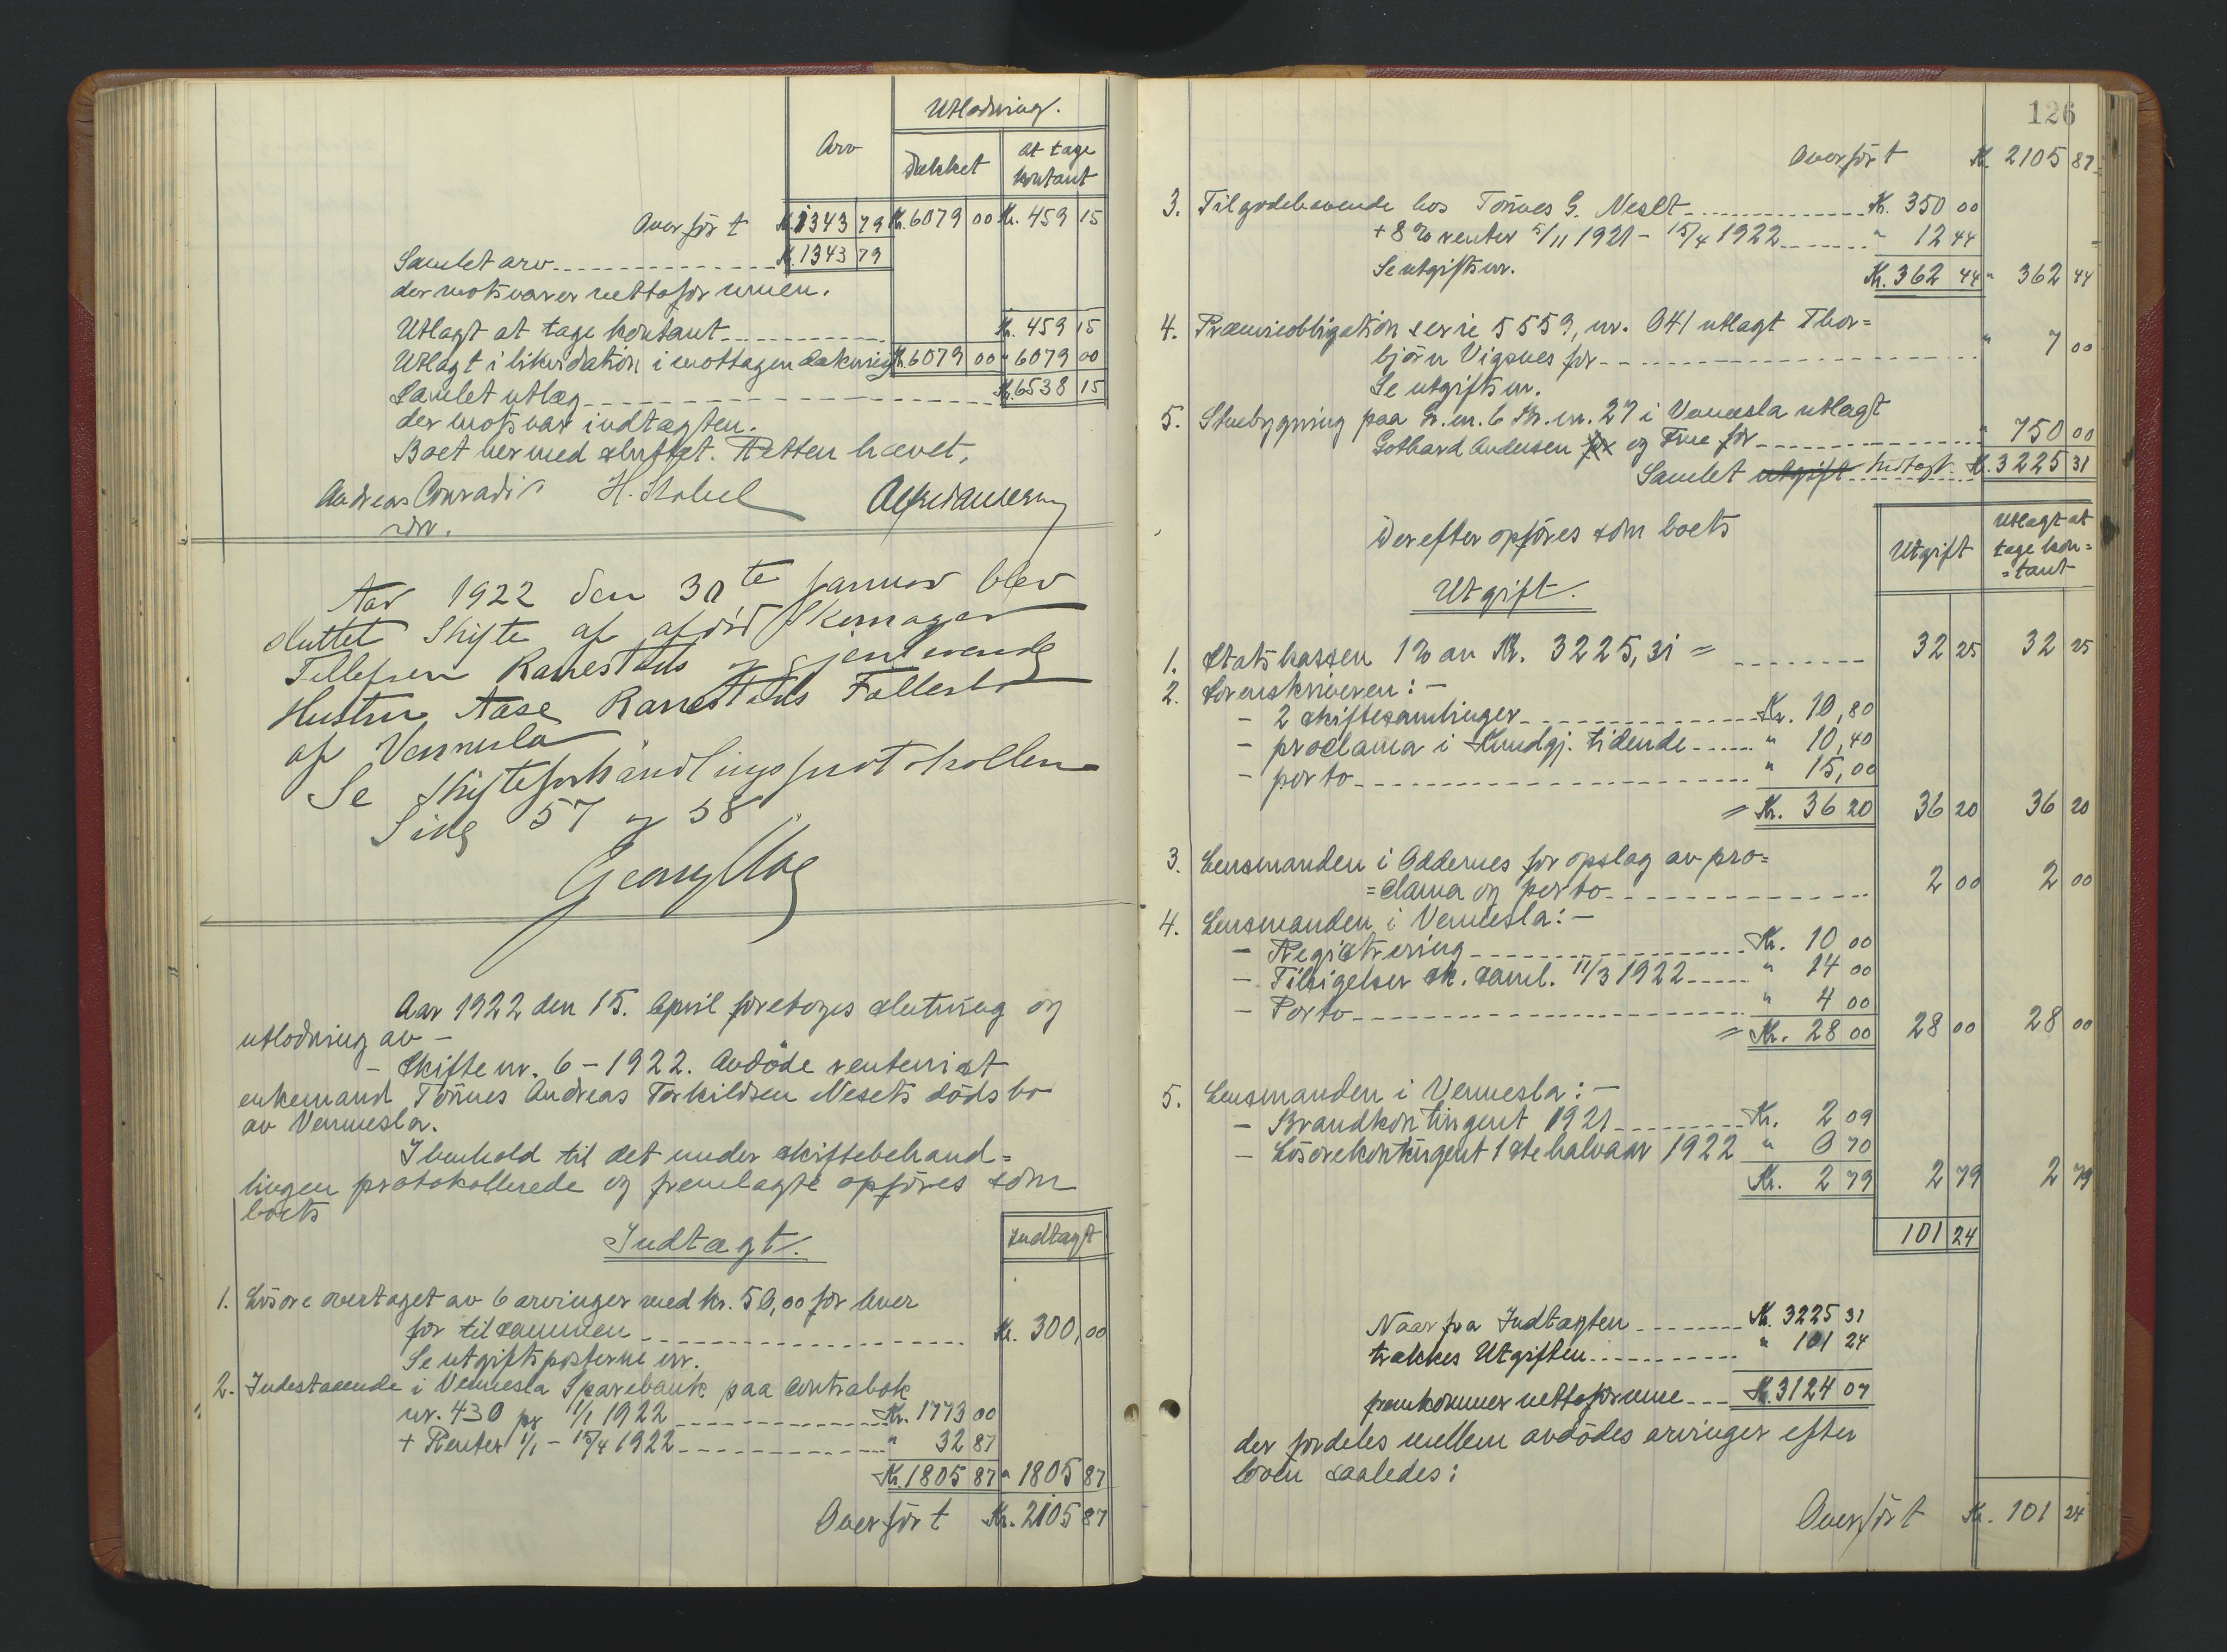 Utlodning.
Arv
Dækket
At tage
kontant
Overført K. 1343 79 Kr. 6079 00 Kr. 459 15
Samlet arv K. 1343 79
der motsvarer nettoformuen.
Utlagt at tage kontant Kr. 459 15
Utlagt i likvidation i mottagen dækning Kr. 6079 00 " 6079 00
Samlet utlæg Kr. 6538 15
der motsvar indtægten.
Boet hermed sluttet. Retten hævet,
Andreas Conradi
H. Stabel
Aar 1922 den 30te Januar blev
sluttet Skifte af afdød Skomager
Tellefsen Ravnestads og gjenlevende
Hustru Aase Ravnestads Fællesbo
af Vennesla
Se Skifteforhandlingsprotokollen
Side 57 og 58.
Aar 1922 den 15. April foretoges slutning og
utlodning av –
– Skifte nr. 6 – 1922. Avdøde rentenist
enkemand Tønnes Andreas Torkildsen Nesets dødsbo
av Vennesla.
I henhold til det under skiftebehand=
lingen protokollerede og fremlagte opføres som
boets
Indtægt.
Indtægt
1. Løsøre overtaget av 6 arvinger med kr. 50,00 for hver
for tilsammen Kr. 300,00
Se utgiftsposterne nr.
2. Indestaaende i Vennesla Sparebank paa Contrabok
nr. 430 pr 1/1 1922 Kr. 1773 00
+ Renter 1/1 – 15/4 1922 " 32 87
Kr. 1805 87 " 1805 87
Overført Kr. 2105 87
126
Overført K. 2105 87
3. Tilgodehavende hos Tønnes G. Neset Kr. 350 00
+ 8 % renter 5/11 1921 – 15/4 1922 " 12 44
Se utgiftsnr. Kr. 362 44 " 362 44
4. Præmieobligation serie 5559, nr. 041 utlagt Thor=
bjørn Vigsnes for " 7 00
Se utgiftsnr.
5. Stuebygning paa Gr. nr. 6 Br. nr. 27 i Vennesla utlagt
Gothard Andersen for og Frue for " 750 00
Samlet utgift Indtægt. Kr. 3225 31
Derefter opføres som boets
Utgift
Utlagt at
tage kon=
=tant
Utgift.
1. Statskassen 1% av Kr. 3225,31 = 32 25 32 25
2. Sorenskriveren: –
– 2 skiftesamlinger Kr. 10,80
– proclama i Kundgj. tidende " 10,40
– porto " 15,00
= Kr. 36 20 36 20 36 20
3. Lensmanden i Oddernes for opslag av pro=
=clama og porto 2 00 2 00
4. Lensmanden i Vennesla: –
– Registrering Kr. 10 00
– Tilsigelser sk. saml. 11/3 1922 " 14 00
– Porto " 4 00
= Kr. 28 00 28 00 28 00
5. Lensmanden i Vennesla: –
– Brandkontingent 1921 Kr. 2 09
– Løsørekontingent 1ste halvaar 1922 " 0 70
Kr. 2 79 2 79 2 79
101 24
Naar fra Indtægten K. 3225 31
trækkes Utgiften " 101 24
fremkommer nettoformue K. 3124 07
der fordeles mellem avdødes arvinger efter
loven saaledes:
Overført Kr. 101 24